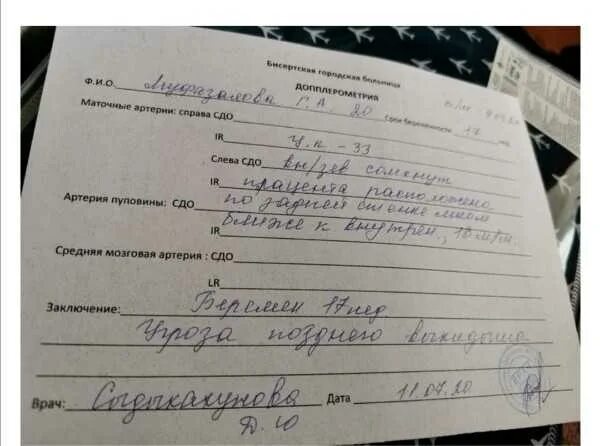 Бисертская городская больница
ДОППЛЕРОМЕТРИЯ
Ф.И.О. Муфазалова Г. А. 20
Маточные артерии: справа СДО Срок беременности 17
IR ц.к - 33
Слева СДО вн/зев сомкнут
IR плацента расположена
Артерия пуповины: СДО по задней стенке
IR ближе к внутрен.,
Средняя мозговая артерия : СДО
LR
Заключение: Беремен 17 нед
Угроза позднего выкидыша
Врач: Сыдыкакунова Дата 11.07.20
Д.Ю